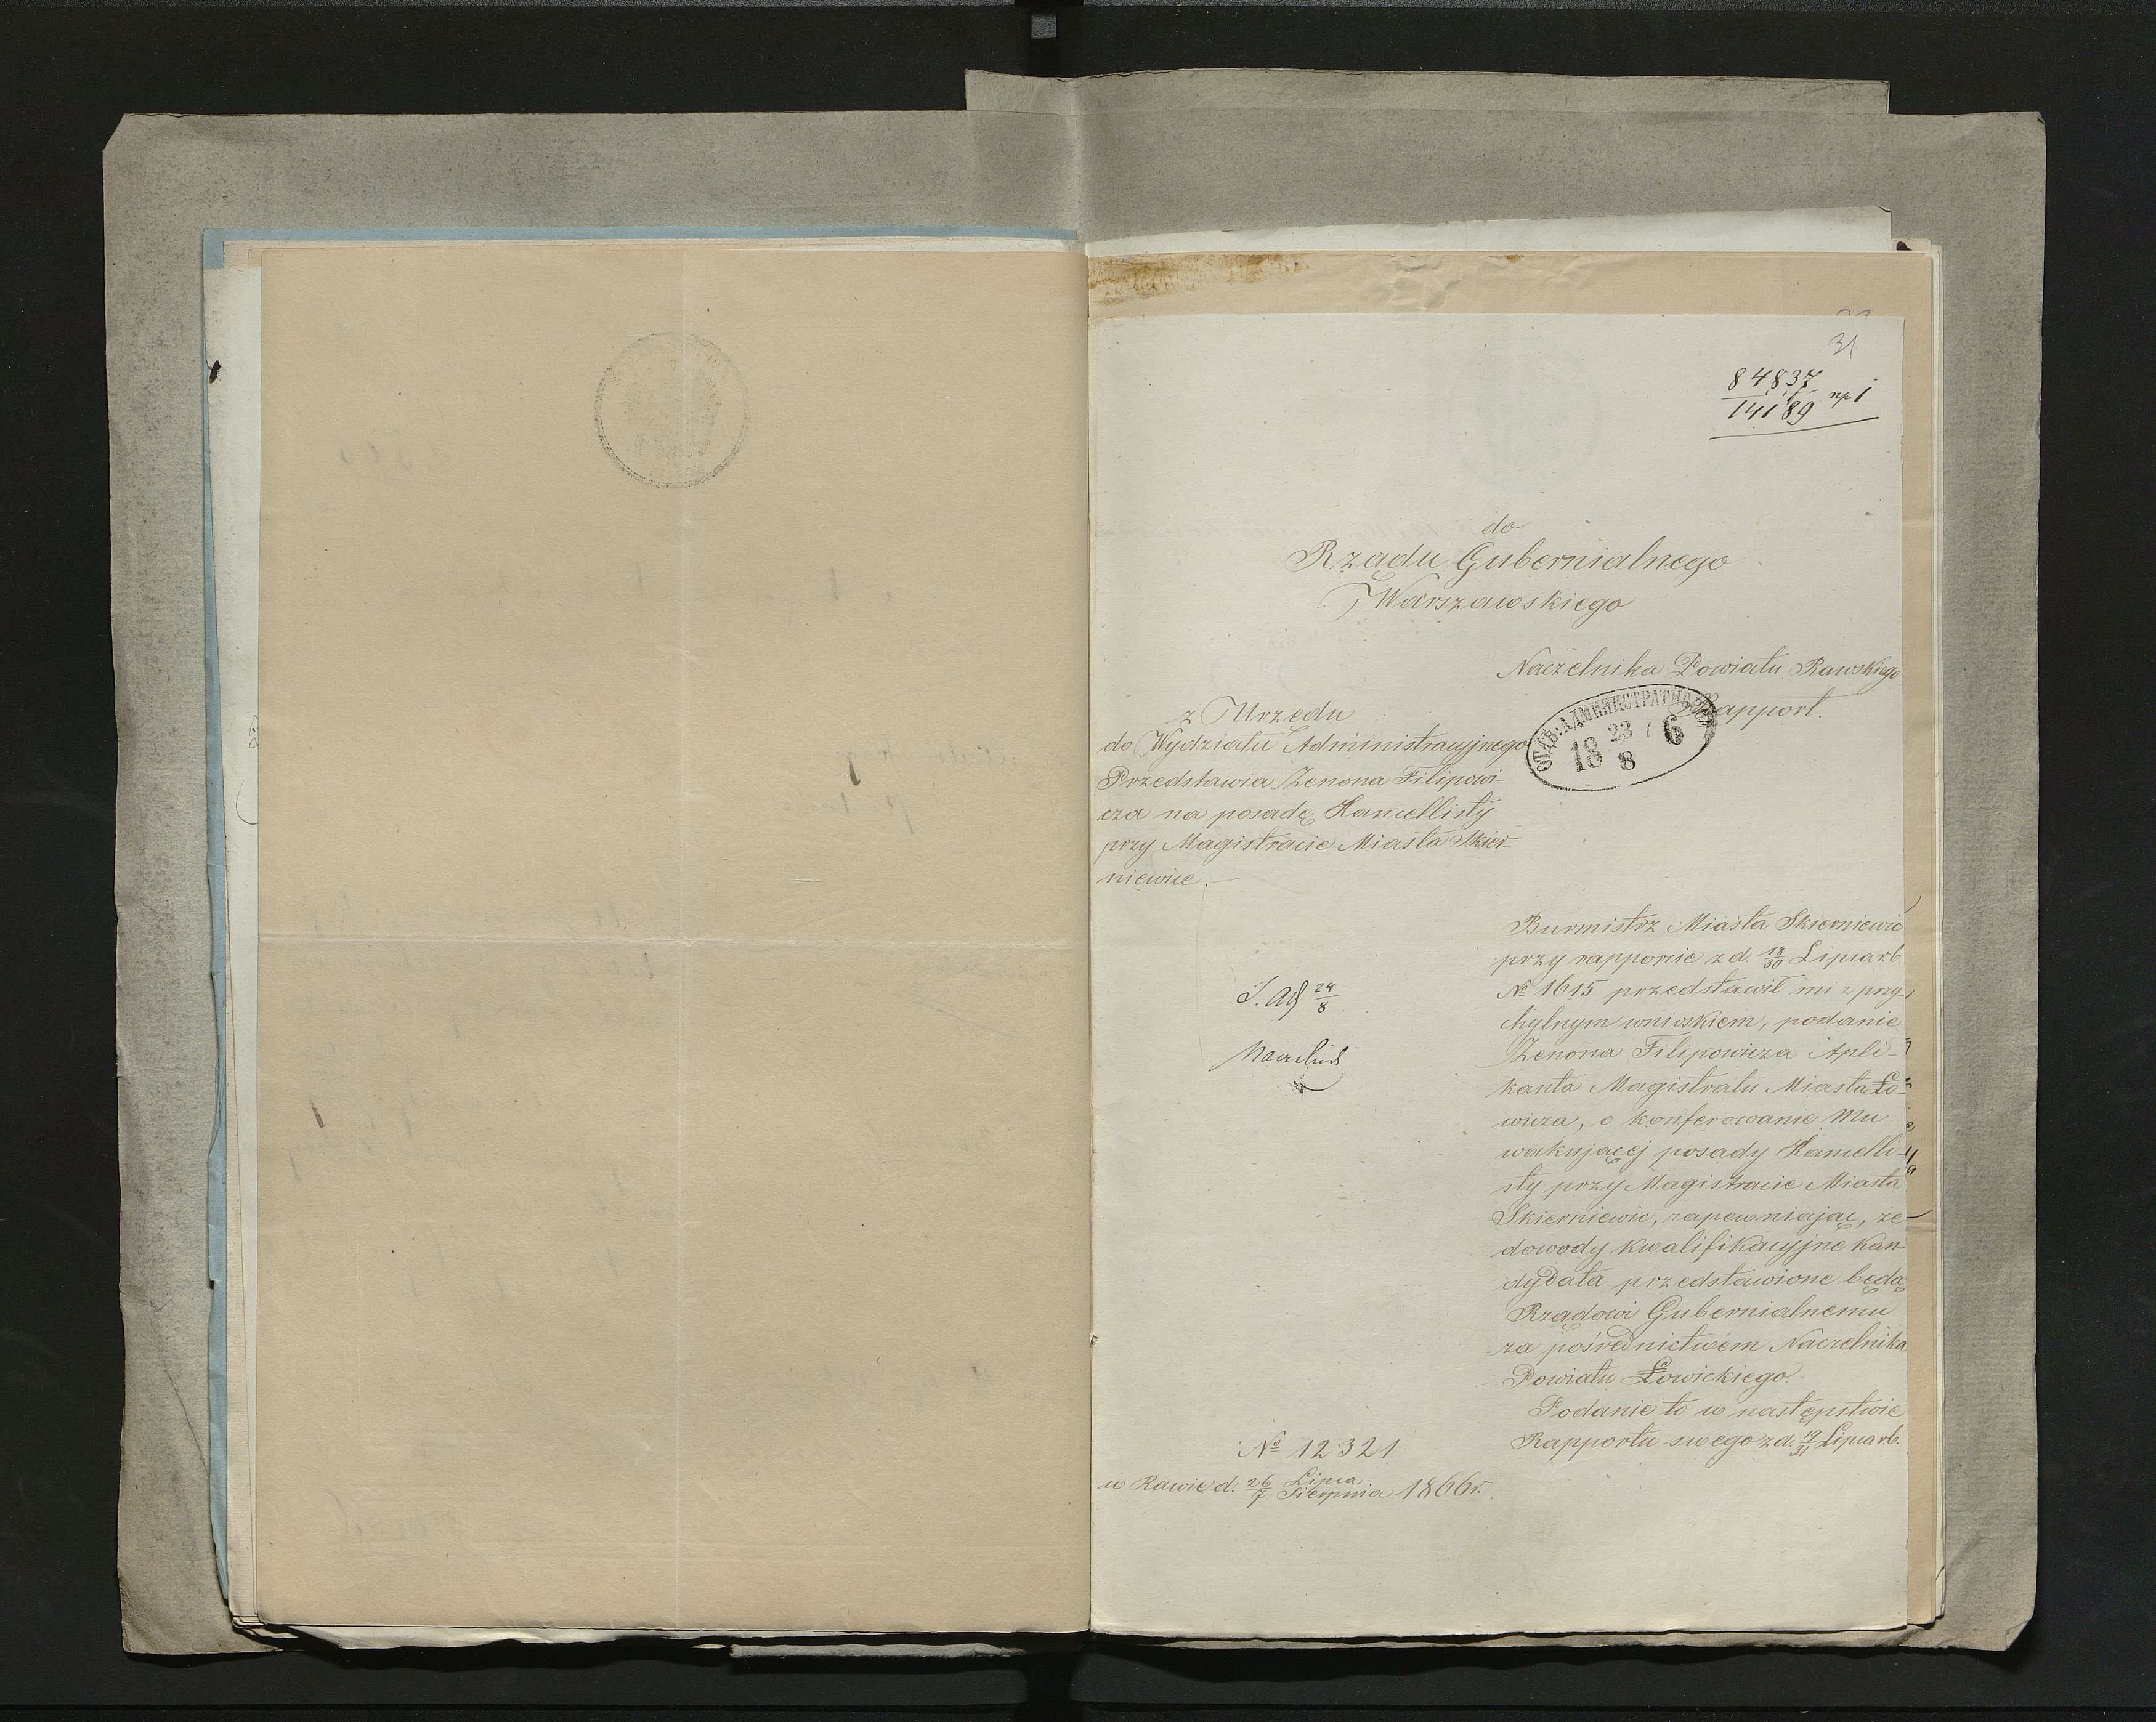 31
84837
14189 np 1
do
Rządu Gubernialnego
Warszawskiego
Naczelnika Powiatu Rawskiego
Rapport.
ОТДѢ: АДМИНИСТРАТИВН
18 23/8 66
z Urzędu
do Wydziału Administracyjnego
Przedstawia Zenona Filipowi-
cza na posadę Kancellisty
przy Magistracie Miasta Skier-
niewice.
Burmistrz Miasta Skierniewic
przy rapporcie z d. 18/30 Lipca r.b.
№ 1615 przedstawił mi z przy-
chylnym wnioskiem, podanie
Zenona Filipowicza Apli-
kanta Magistratu Miasta Ło-
wicza, o konferowanie Mu
wakującej posady Kancelli-
sty przy Magistracie Miasta
Skierniewic, zapewniając, że
dowody kwalifikacyjne kan-
dydata przedstawione będą
Rządowi Gubernialnemu
za pośrednictwem Naczelnika
Powiatu Łowickiego.
Podanie to w następstwie
Rapportu swego z d. 19/31 Lipca r.b.
24/8
№ 12321
w Rawie d. 26/7 Lipca/Sierpnia 1866 r.